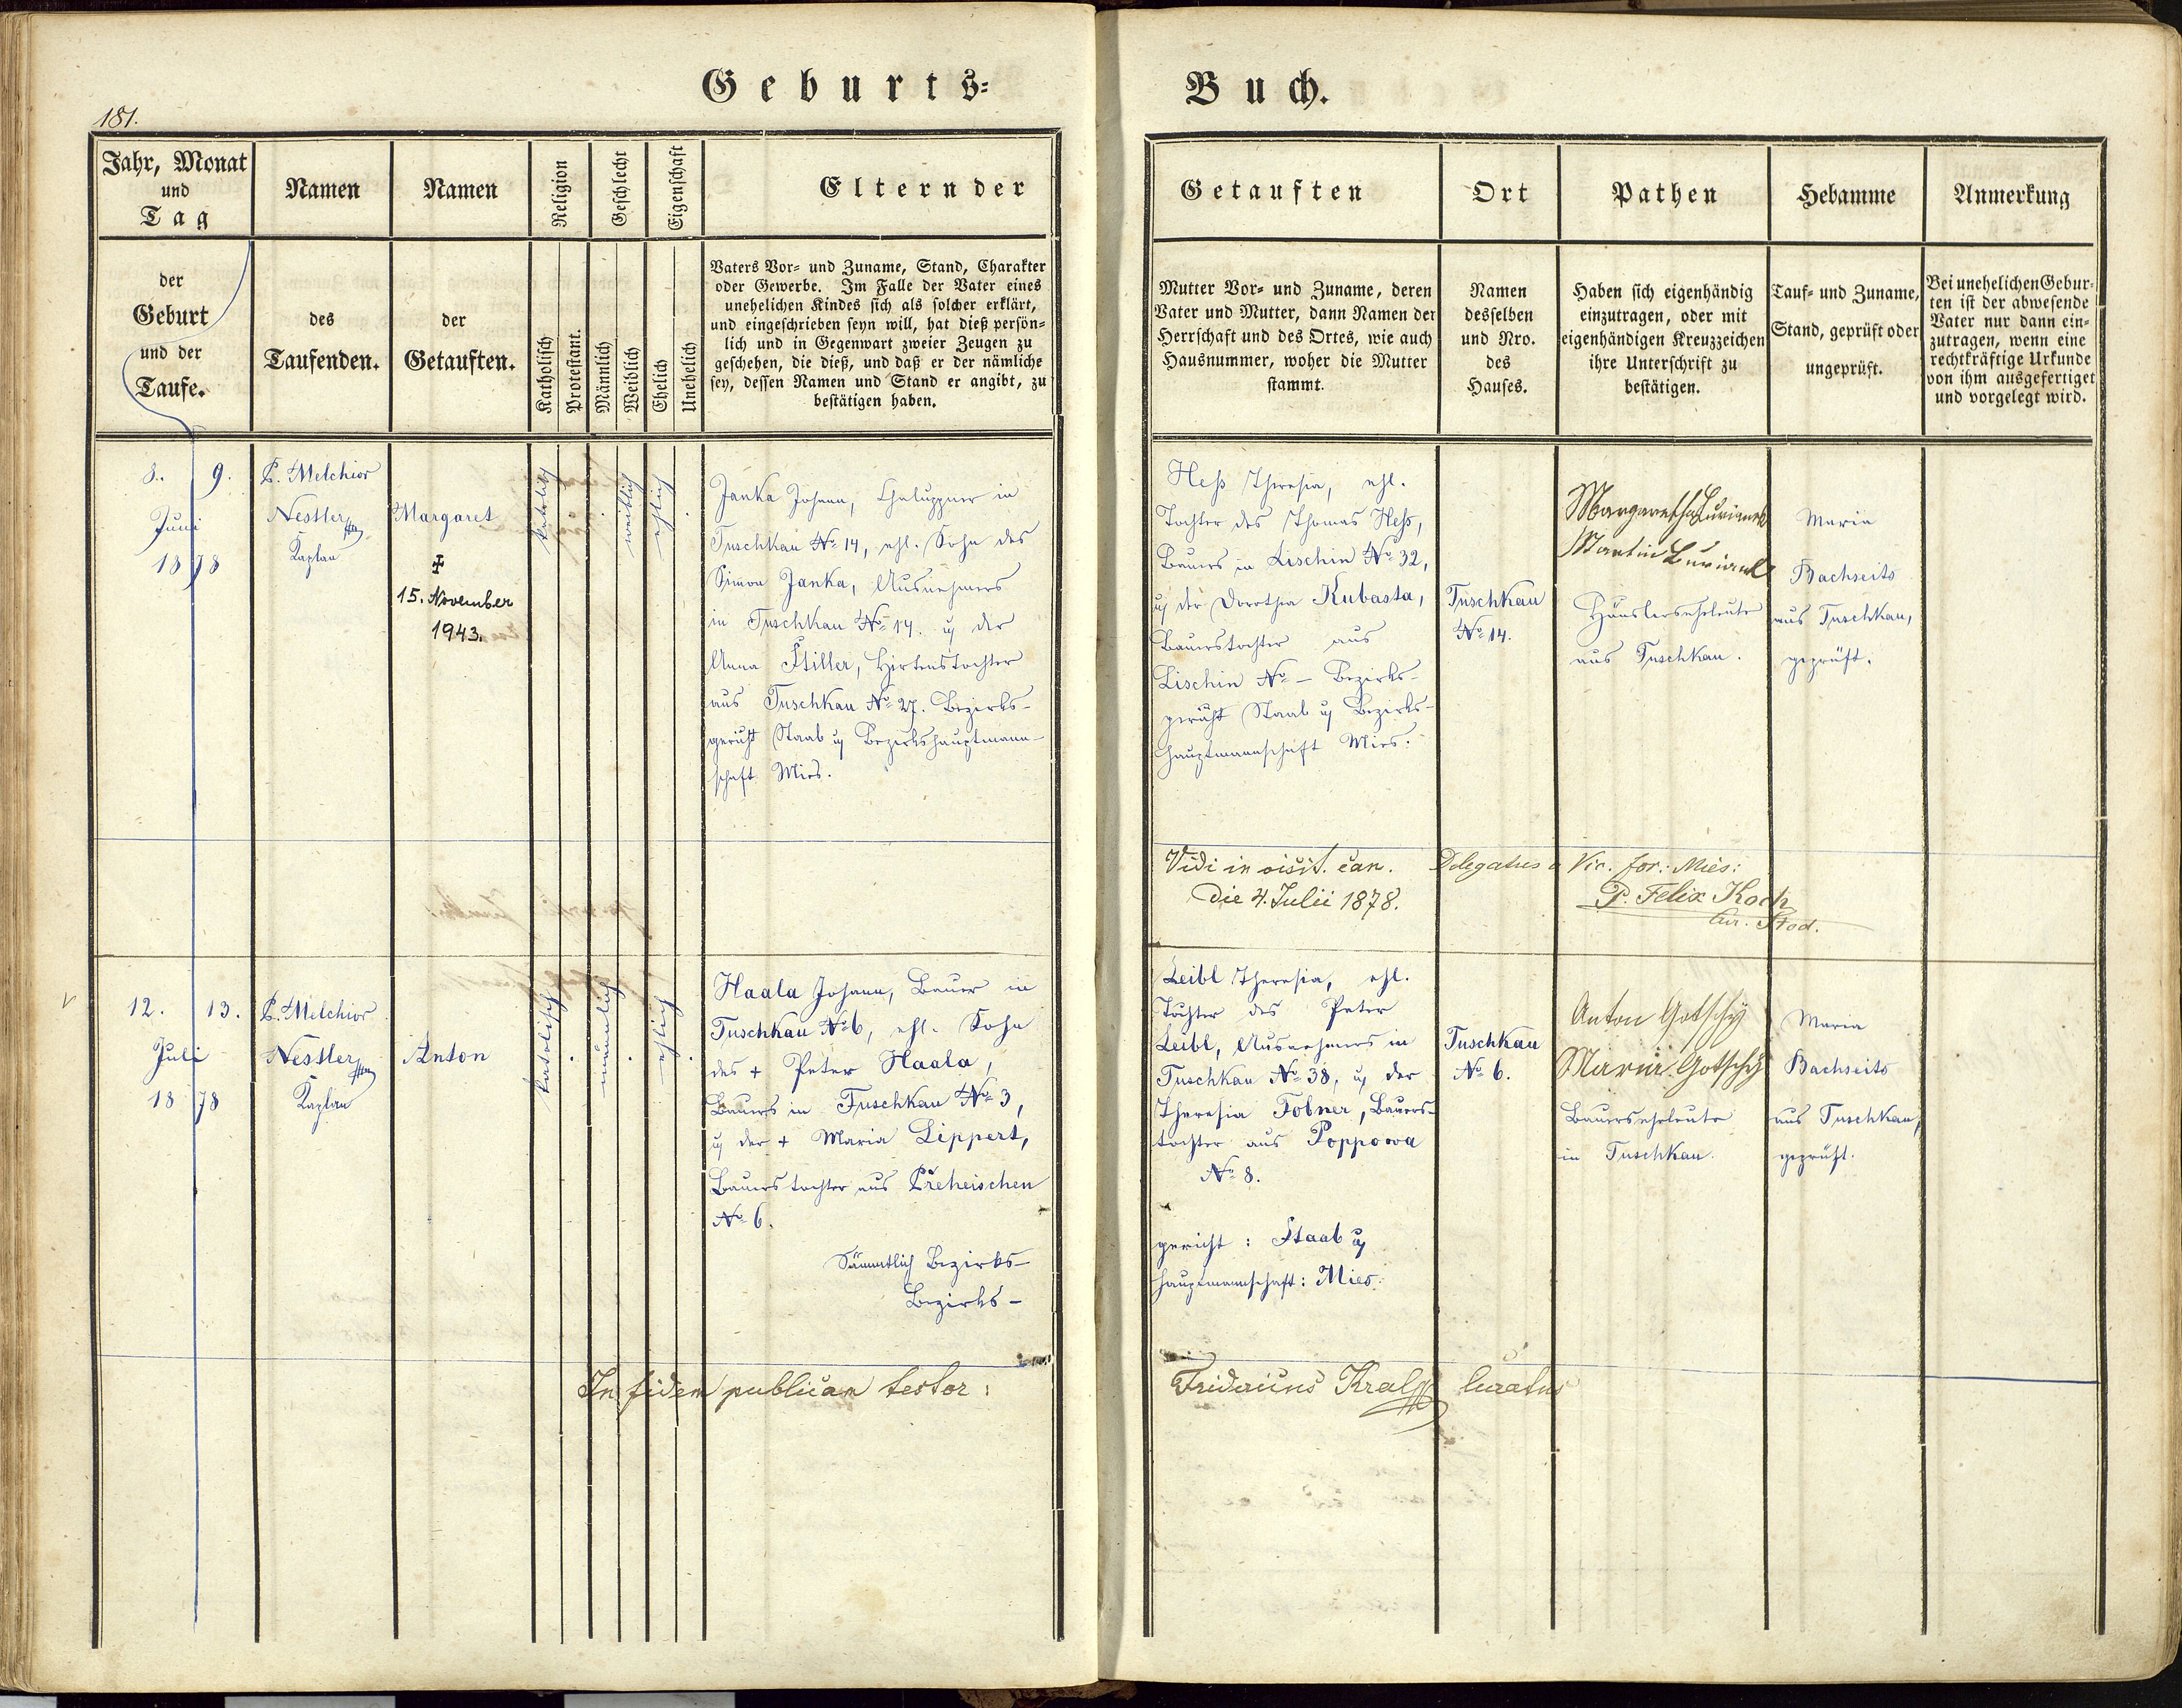 Geburts=
Buch.
181.
Jahr, Monat
und
Tag
Namen
Namen
Religion
Geschlecht
Eigenschaft
Eltern der
Getauften
Ort
Pathen
Hebamme
Anmerkung
der
Geburt
und der
Taufe.
des
Taufenden.
der
Getauften.
Katholisch
Protestant.
Männlich
Weiblich
Ehelich
Unehelich
Vaters Vor= und Zuname, Stand, Charakter
oder Gewerbe. Im Falle der Vater eines
unehelichen Kindes sich als solcher erklärt,
und eingeschrieben seyn will, hat dieß persön=
lich und in Gegenwart zweier Zeugen zu
geschehen, die dieß, und daß er der nämliche
sey, dessen Namen und Stand er angibt, zu
bestätigen haben.
Mutter Vor= und Zuname, deren
Vater und Mutter, dann Namen der
Herrschaft und des Ortes, wie auch
Hausnummer, woher die Mutter
stammt.
Namen
desselben
und Nro.
des
Hauses.
Haben sich eigenhändig
einzutragen, oder mit
eigenhändigen Kreuzzeichen
ihre Unterschrift zu
bestätigen.
Tauf= und Zuname,
Stand, geprüft oder
ungeprüft.
Bei unehelichen Gebur=
ten ist der abwesende
Vater nur dann ein=
zutragen, wenn eine
rechtkräftige Urkunde
von ihm ausgefertiget
und vorgelegt wird.
8. 9.
Juni
1878
P. Melchior
Nestler
Kaplan
Margaret
✠
15. November
1943.
katolisch
weiblich
ehlich
Janka Johann, Chaluppner in
Tuschkau No 14, ehl. Sohn des
Simon Janka, Ausnehmers
in Tuschkau No 14. u der
Anna Stiller, Hirtenstochter
aus Tuschkau No 27. Bezirks-
gericht Staab u Bezirkshauptmann-
schaft Mies.
Heß Theresia, ehl.
Tochter des Thomas Heß,
Bauers in Lischin No 32,
u der Dorothea Kubasta,
Bauerstochter aus
Lischin No – Bezirks-
gericht Staab u Bezirks-
hauptmannschaft Mies.
Tuschkau
No 14.
Margaretha
Martin
Häuslerseheleute
aus Tuschkau.
Maria
Bachseits
aus Tuschkau,
geprüft.
Vidi in visit. can. Delegatus a Vic. for: Mies:
Die 4. Julii 1878.
P. Felix Koch
Cur. Stod.
12. 13.
Juli
1878
P. Melchior
Nestler
Kaplan
Anton
katolisch
männlich
ehlich
Haala Johann, Bauer in
Tuschkau No 6, ehl. Sohn
des + Peter Haala,
Bauers in Tuschkau No 3,
u der + Maria Lippert,
Bauerstochter aus Přeheischen
No 6.
Sämmtlich Bezirks-
Bezirks-
Leibl Theresia, ehl.
Tochter des Peter
Leibl, Ausnehmers in
Tuschkau No 38, u der
Theresia Tobner, Bauers-
tochter aus Poppowa
No 8.
gericht: Staab u
hauptmannschaft: Mies.
Tuschkau
No 6.
Anton Gotschy
Maria Gotschy
Bauerseheleute
in Tuschkau.
Maria
Bachseits
aus Tuschkau,
geprüft.
In fidem publicam testor:
Fridericus Kral Curatus